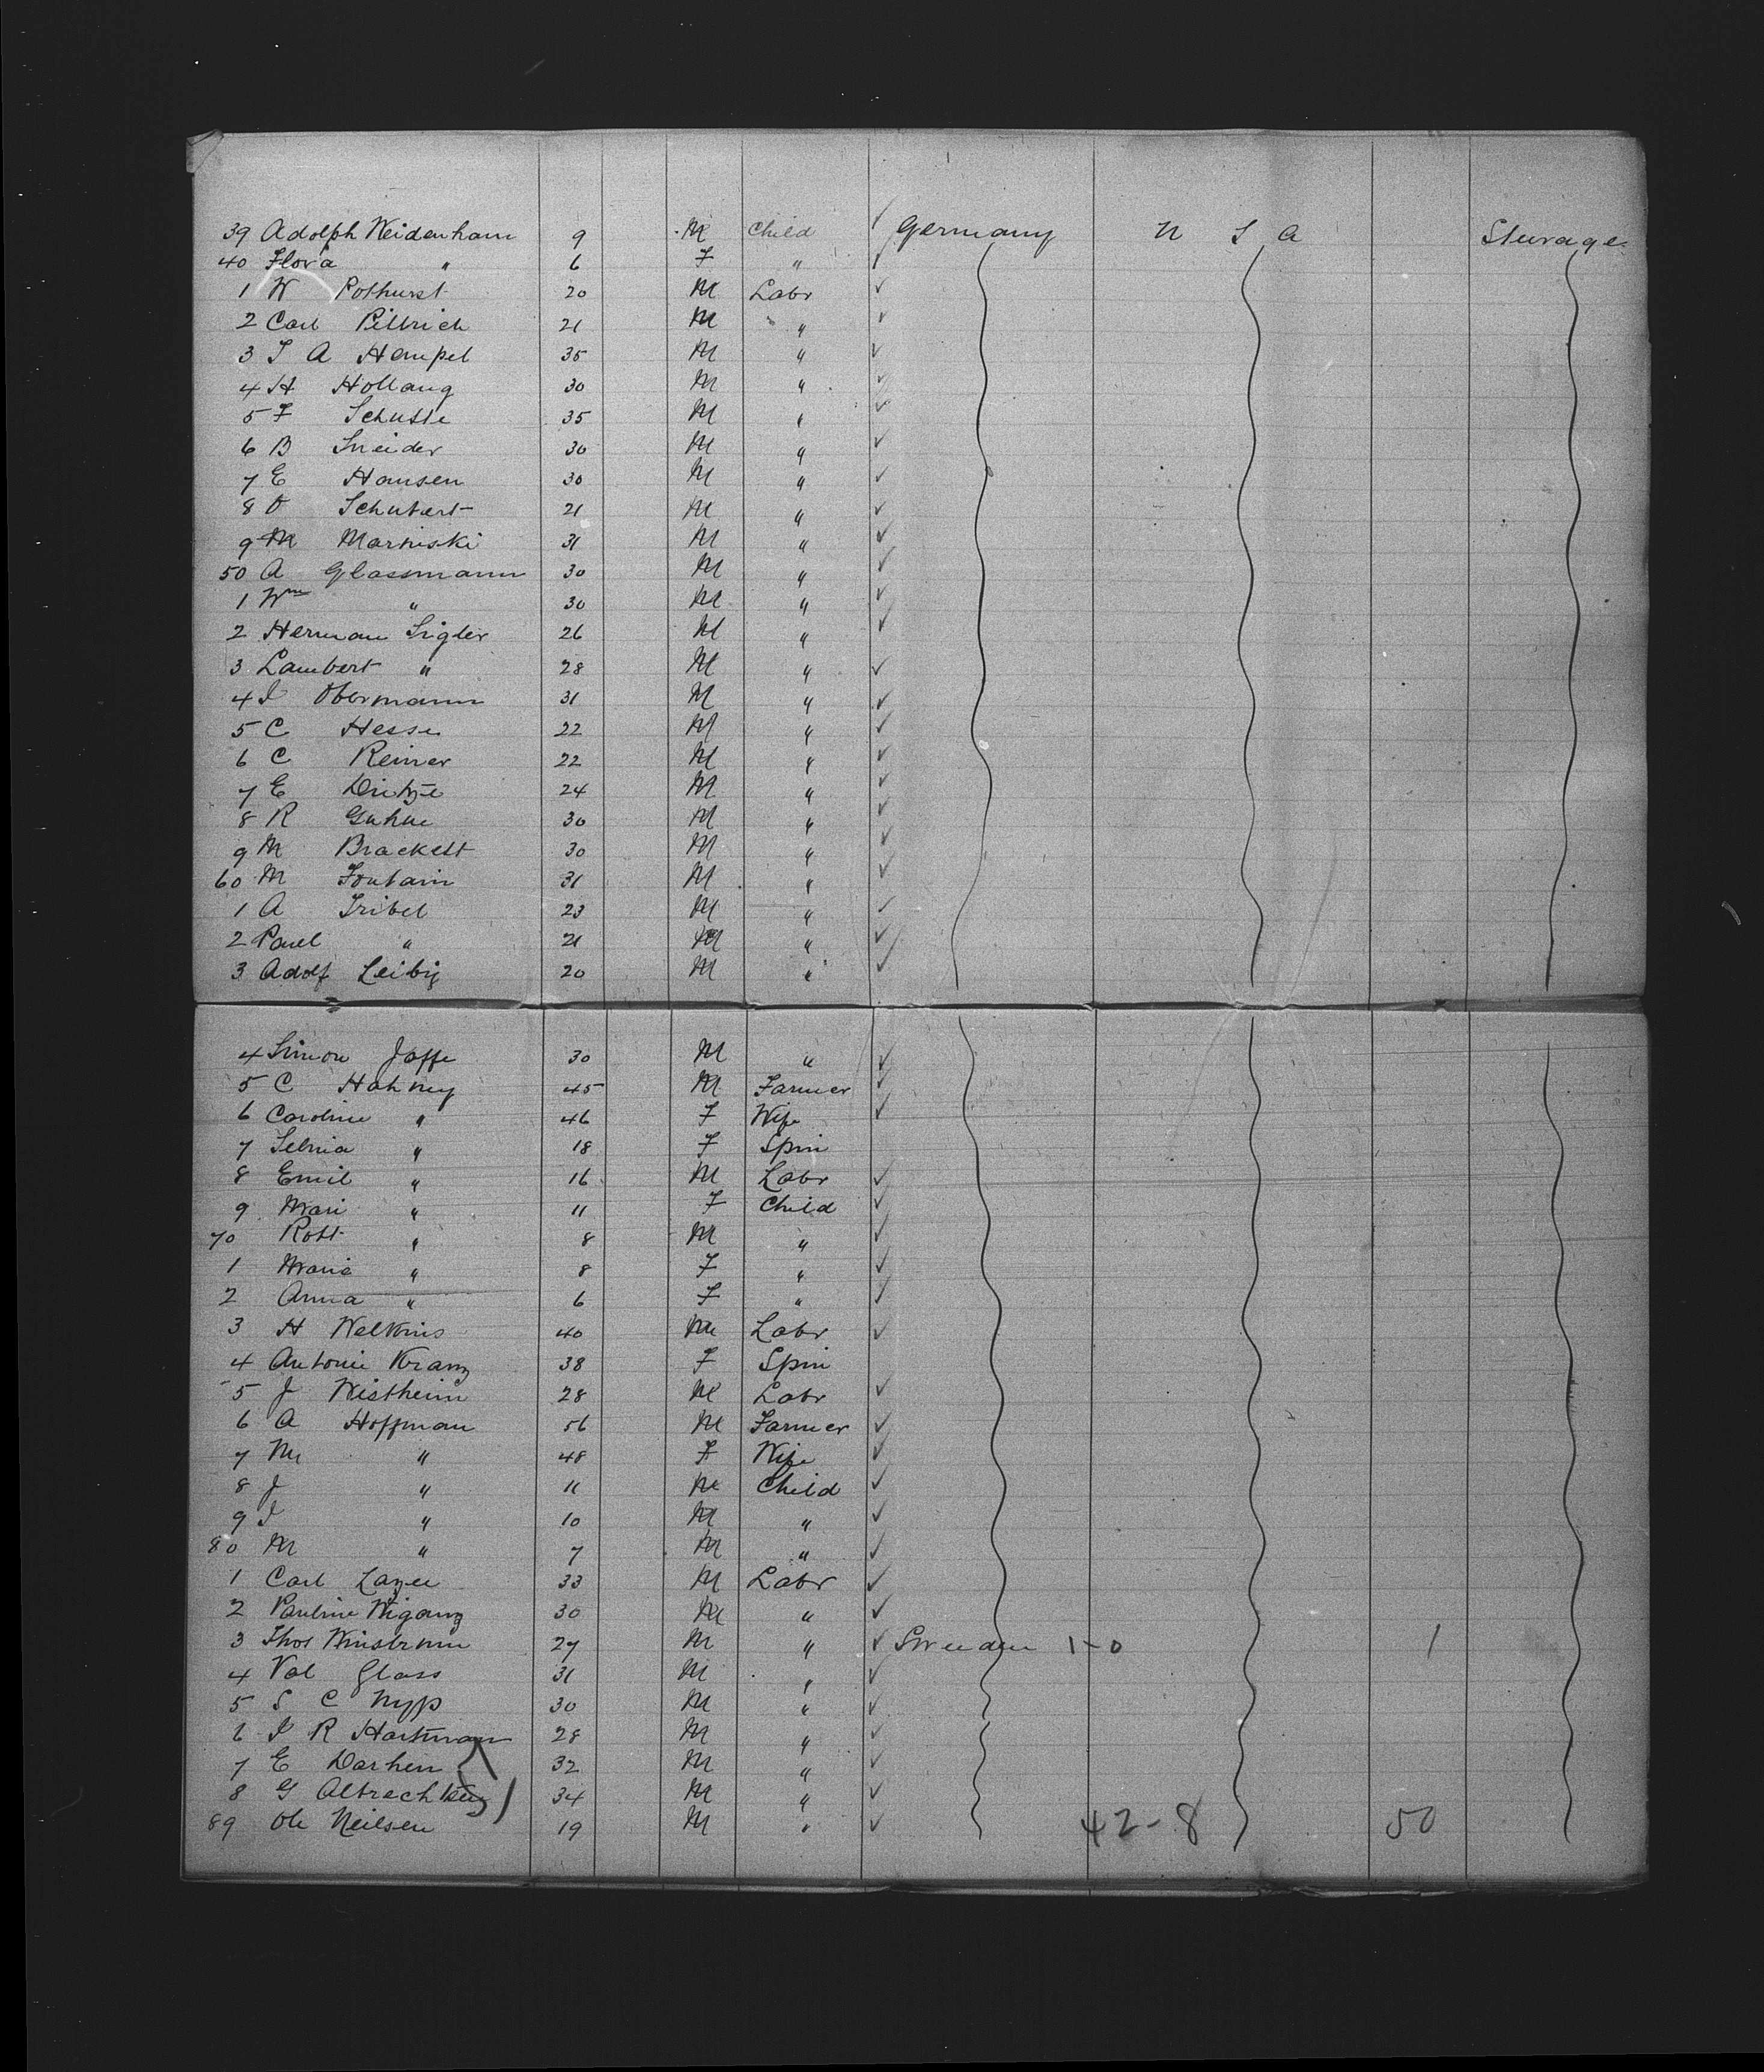 39 Adolph Weidenham 9 M Child ✓ Germany U S A Sturage
40 Flora " 6 F " ✓
1 W Pothurst 20 M Labr ✓
2 Carl Pittrich 21 M " ✓
3 T A Hempel 35 M " ✓
4 H Hollang 30 M " ✓
5 F Schutte 35 M " ✓
6 B Sneider 30 M " ✓
7 E Hansen 30 M " ✓
8 O Schubert 21 M " ✓
9 M Marniski 31 M " ✓
50 A Glassmann 30 M " ✓
1 Wm " 30 M " ✓
2 Herman Sigler 26 M " ✓
3 Lambert " 28 M " ✓
4 I Obermann 31 M " ✓
5 C Hesse 22 M " ✓
6 C Reiner 22 M " ✓
7 E 24 M " ✓
8 R Guhne 30 M " ✓
9 M Brackett 30 M " ✓
60 M Foutain 31 M " ✓
1 A Tribel 23 M " ✓
2 Paul " 21 M " ✓
3 Adolf Leibig 20 M " ✓
4 Simon Jaffe 30 M " ✓
5 C Hahney 45 M Farmer ✓
6 Caroline " 46 F Wife ✓
7 Selma " 18 F Spin
8 Emil " 16 M Labr ✓
9 Mari " 11 F Child ✓
70 Robt " 8 M " ✓
1 Marie " 8 F " ✓
2 Anna " 6 F " ✓
3 H Welkins 40 M Labr ✓
4 Antonie Kranz 38 F Spin
5 J Wistheim 28 M Labr ✓
6 A Hoffman 56 M Farmer ✓
7 M " 48 F Wife ✓
8 J " 11 M Child ✓
9 I " 10 M " ✓
80 M " 7 M " ✓
1 Carl Lazee 33 M Labr ✓
2 Pauline Wiganz 30 M " ✓
3 Thos Winstrum 27 M " ✓ Sweeden 1-0 1
4 Val Glass 31 M " ✓
5 S C Nyps 30 M " ✓
6 I R Hartman 28 M " ✓
7 E Darhen 32 M " ✓
8 G Albrecht 34 M " ✓
89 Ole Neilsen 19 M " ✓ 42-8 50